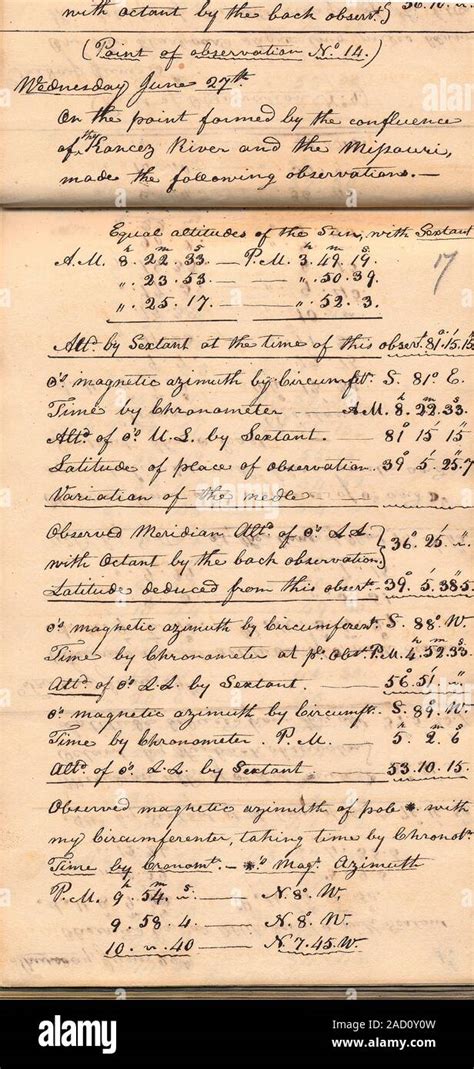 with octant by the back observt. } 36.10.
(Point of observation No. 14.)
Wednesday June 27th.
On the point formed by the confluence
of the Kancez River and the Missouri,
made the following observations.—
Equal altitudes of the Sun, with Sextant
h m s h m s
A.M. 8. 22. 33. — P.M. 3. 49. 19.
". 23. 53. — ". 50. 39.
". 25. 17. — ". 52. 3.
17
Altd. by Sextant at the time of this obsert. 81°.15.15
☉'s magnetic azimuth by Circumft. S. 81° E.
Time by Chronometer — A.M. 8. 22. 33.
Altd. of ☉'s U.L. by Sextant. — 81° 15' 15"
Latitude of place of observation. 39° 5'. 25".7
Variation of the nedle
Observed Meridian Altd. of ☉'s L.L. }
with Octant by the back observation } 36°. 25'. "
Latitude deduced from this obsert. 39°. 5'. 38.5
☉'s magnetic azimuth by Circumferentr. S. 88° W.
Time by Chronometer at pr. Obst. P.M. 4. 52. 33.
Altd. of ☉'s L.L. by Sextant. — 56°. 51'. "
☉'s magnetic azimuth by Circumft. S. 89°. W.
Time by Chronometer. P.M. — 5. 2. 6
Altd. of ☉'s L.L. by Sextant — 53. 10. 15.
Observed magnetic azimuth of pole * with
my Circumferenter, taking time by Chronotr.
Time by Cronomt. — *'s Magt. Azimuth
h m s
P.M. 9. 54. ". — N. 8°. W.
9. 58. 4. — N. 8°. W.
10. ". 40 — N. 7. 45. W.
alamy
alamy
Image ID: 2AD0Y0W
www.alamy.com